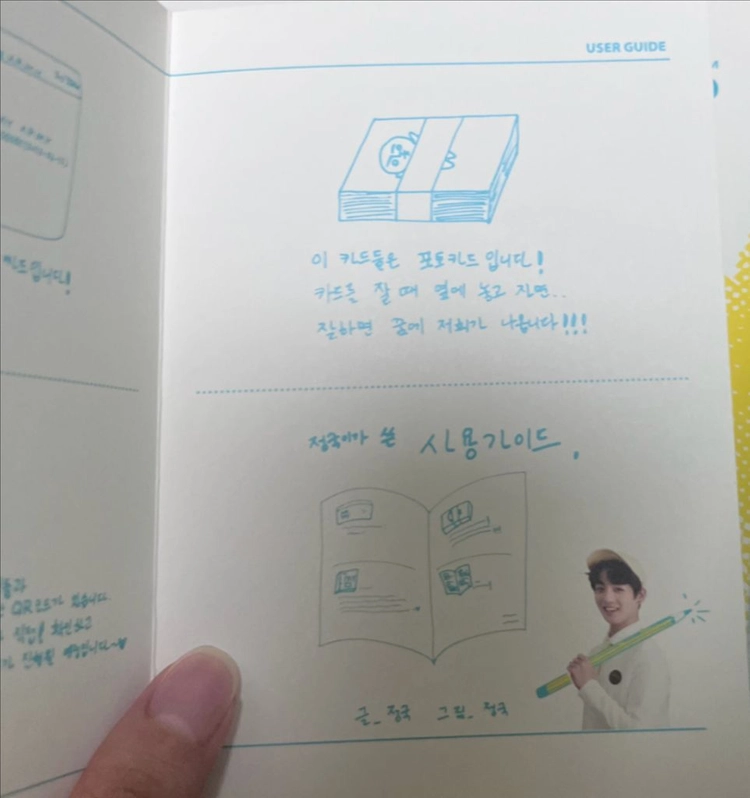 USER GUIDE
이 카드들은 포토카드입니다!
카드를 잘 때 옆에 놓고 자면..
잘하면 꿈에 저희가 나옵니다!!!
정국이가 쓴 사용가이드.
글_정국 그림_정국
QR코드가 있습니다
확인하고
예정입니다~♥